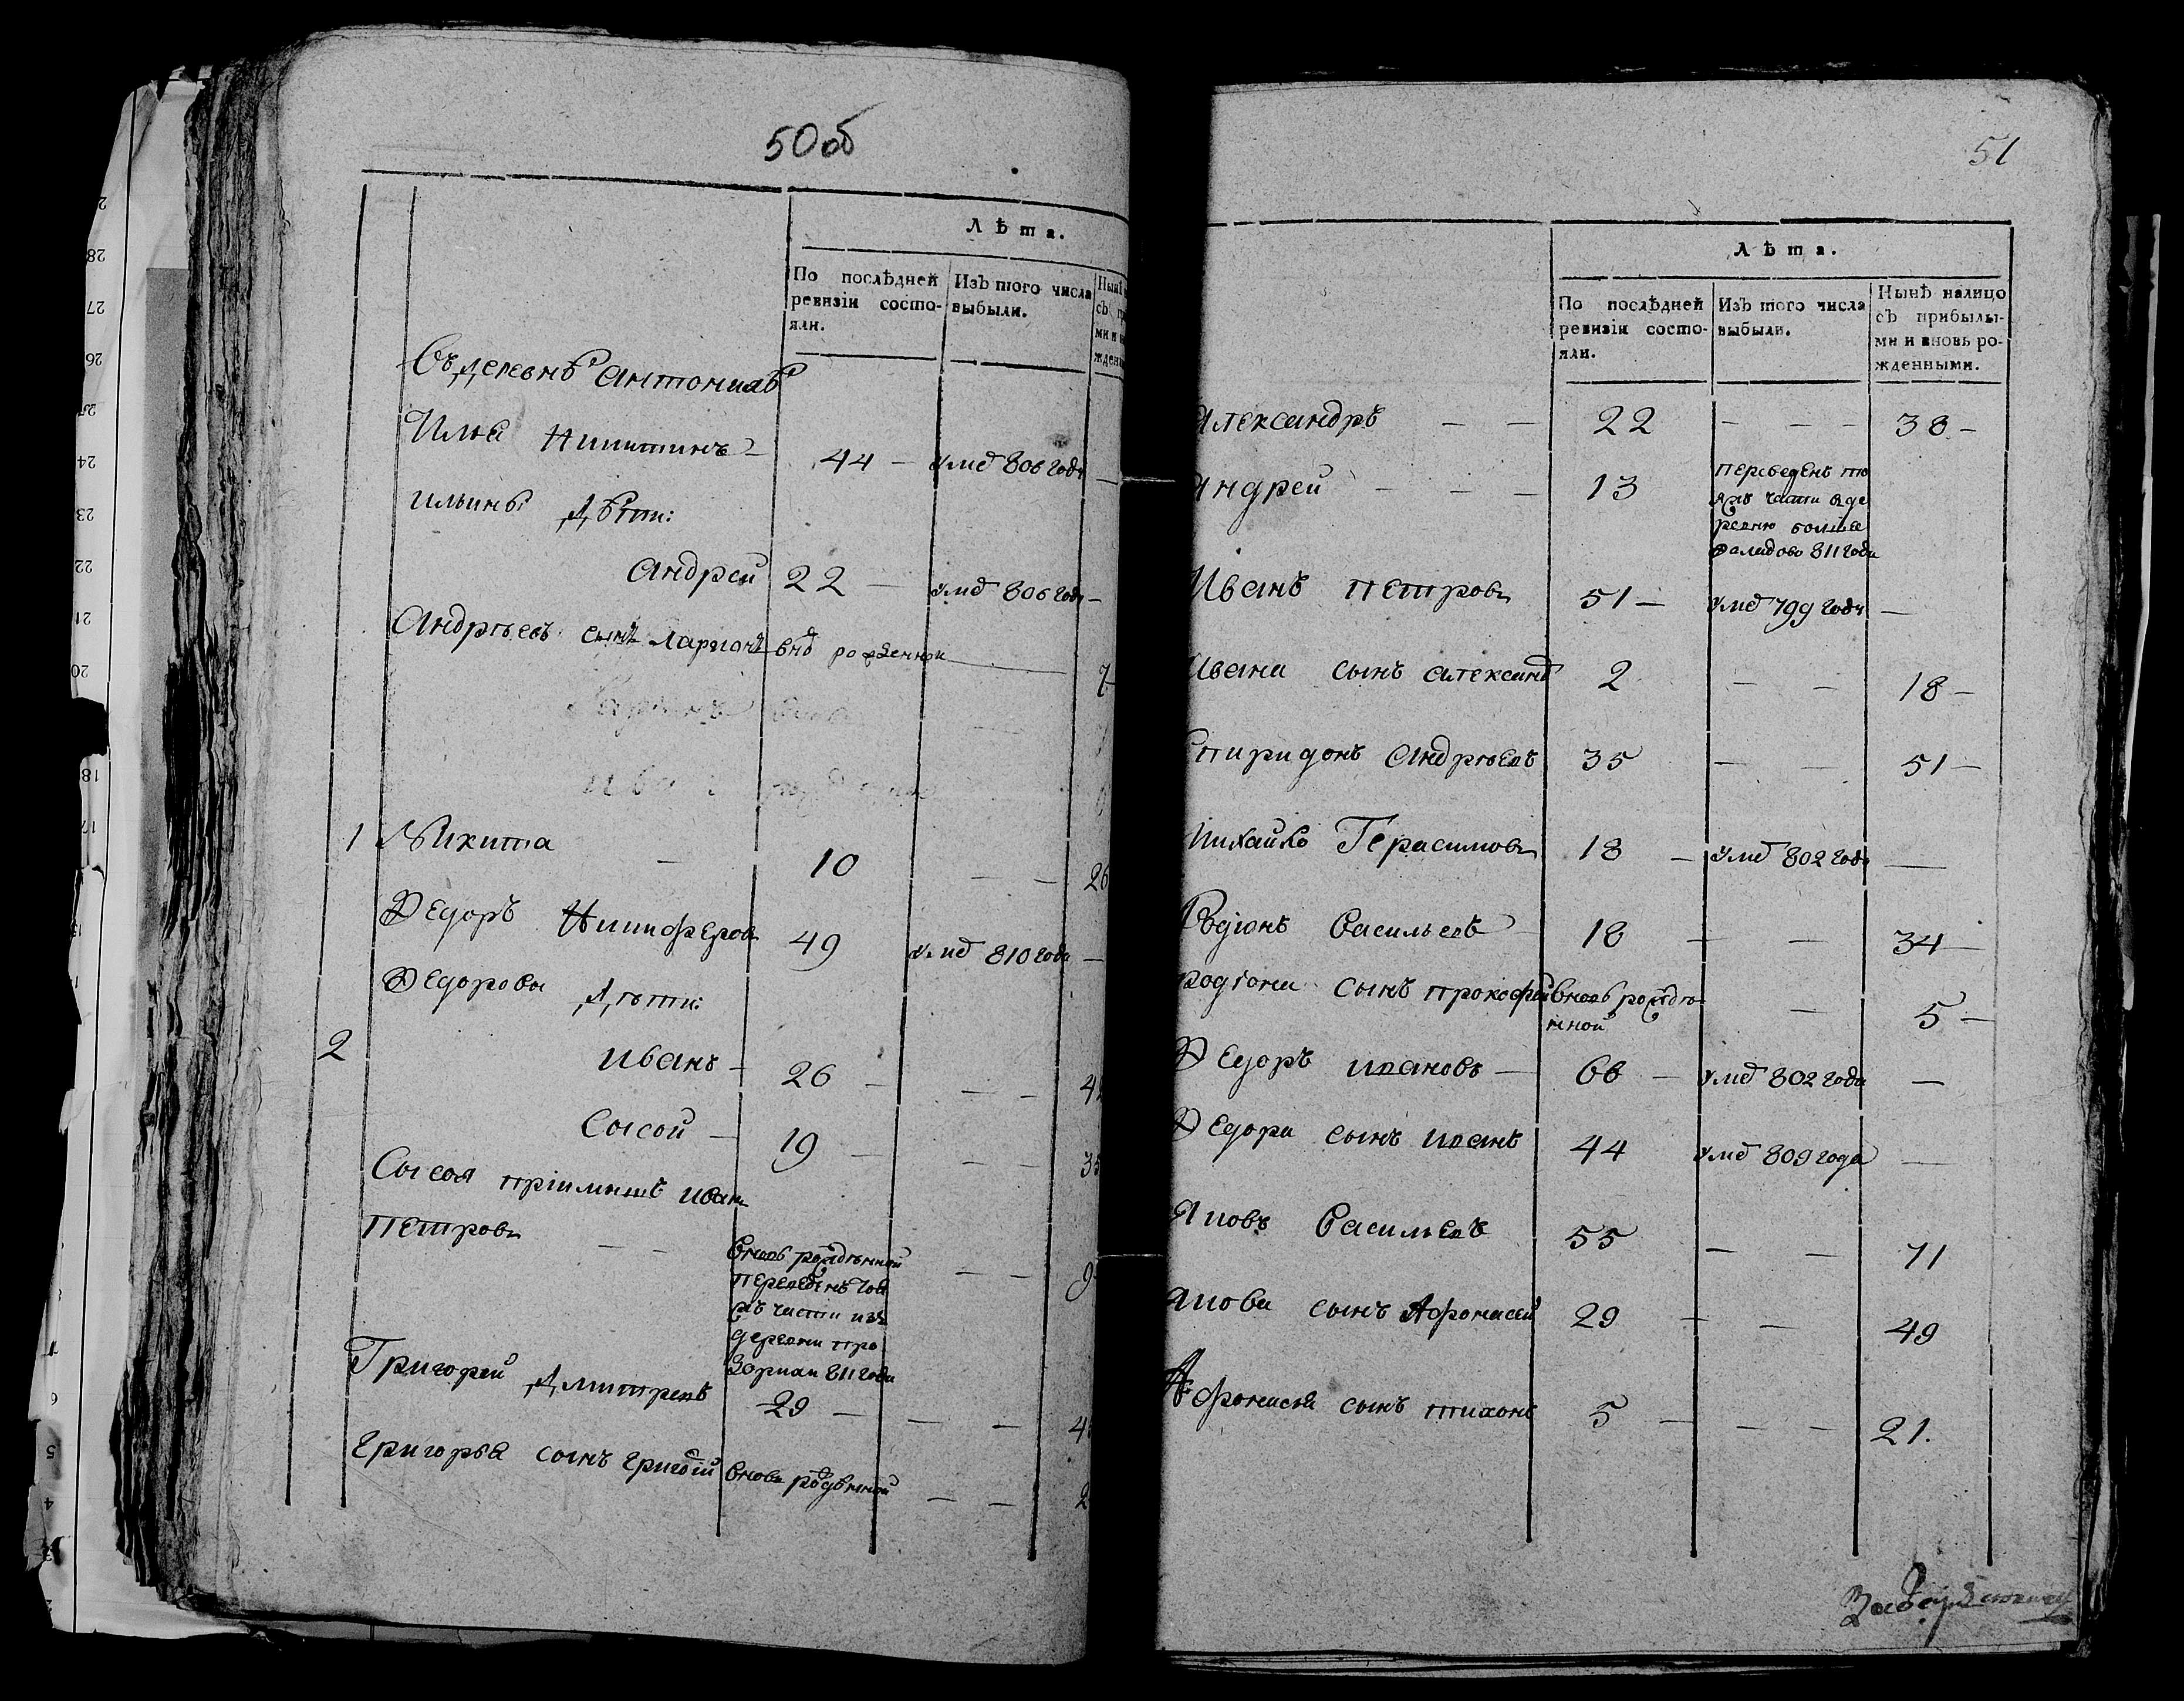 50об
Лѣта.
По послѣдней ревизіи состояли.
Изъ того числа выбыли.
Нынѣ
Въ деревнѣ
Илья Никитинъ 44 – умѐ 806 года –
Ильины дѣти:
Андрей 22 – умѐ 806 года –
Андрѣевъ сынъ Ларионъ внѡ рожденной 7
1 Никита – 10 – – 26
Федоръ Никифоров 49 умѐ 810 года –
Федорова дѣти:
2 Иванъ – 26 – – –
Сысой – 19 – – –
Сысоя пріимышъ Иван
Петров – – вновь рожденной – – 9
переведенъ той
жъ части изъ
деревни
811 года
Григорей Дмитревъ 29 – – –
Григорья сынъ Григорій вновь рожденной – –
51
Лѣта.
По послѣдней ревизіи состояли.
Изъ того числа выбыли.
Нынѣ налицо съ прибылыми и вновь рожденными.
Александръ – – 22 – – – 38 –
Андрей – – – 13 переведенъ той
жъ части в де
ревню болшее
811 года
Иванъ Петров 51 – умѐ 799 года –
Ивана сынъ Александ 2 – – 18 –
Спиридонъ Андрѣевъ 35 – – 51 –
Михайло Герасимов 18 – умѐ 802 года –
Родіонъ Васильевъ 18 – – 34 –
Родіона сынъ Прокофей вновь рожде
нной – 5 –
Федоръ Ивановъ – 66 – умѐ 802 года –
Федора сынъ Иванъ 44 умѐ 809 года –
Яковъ Васильевъ 55 – – 71
Якова сынъ Афонасей 29 – – 49
Афонасья сынъ Тихонъ 5 – – – 21.